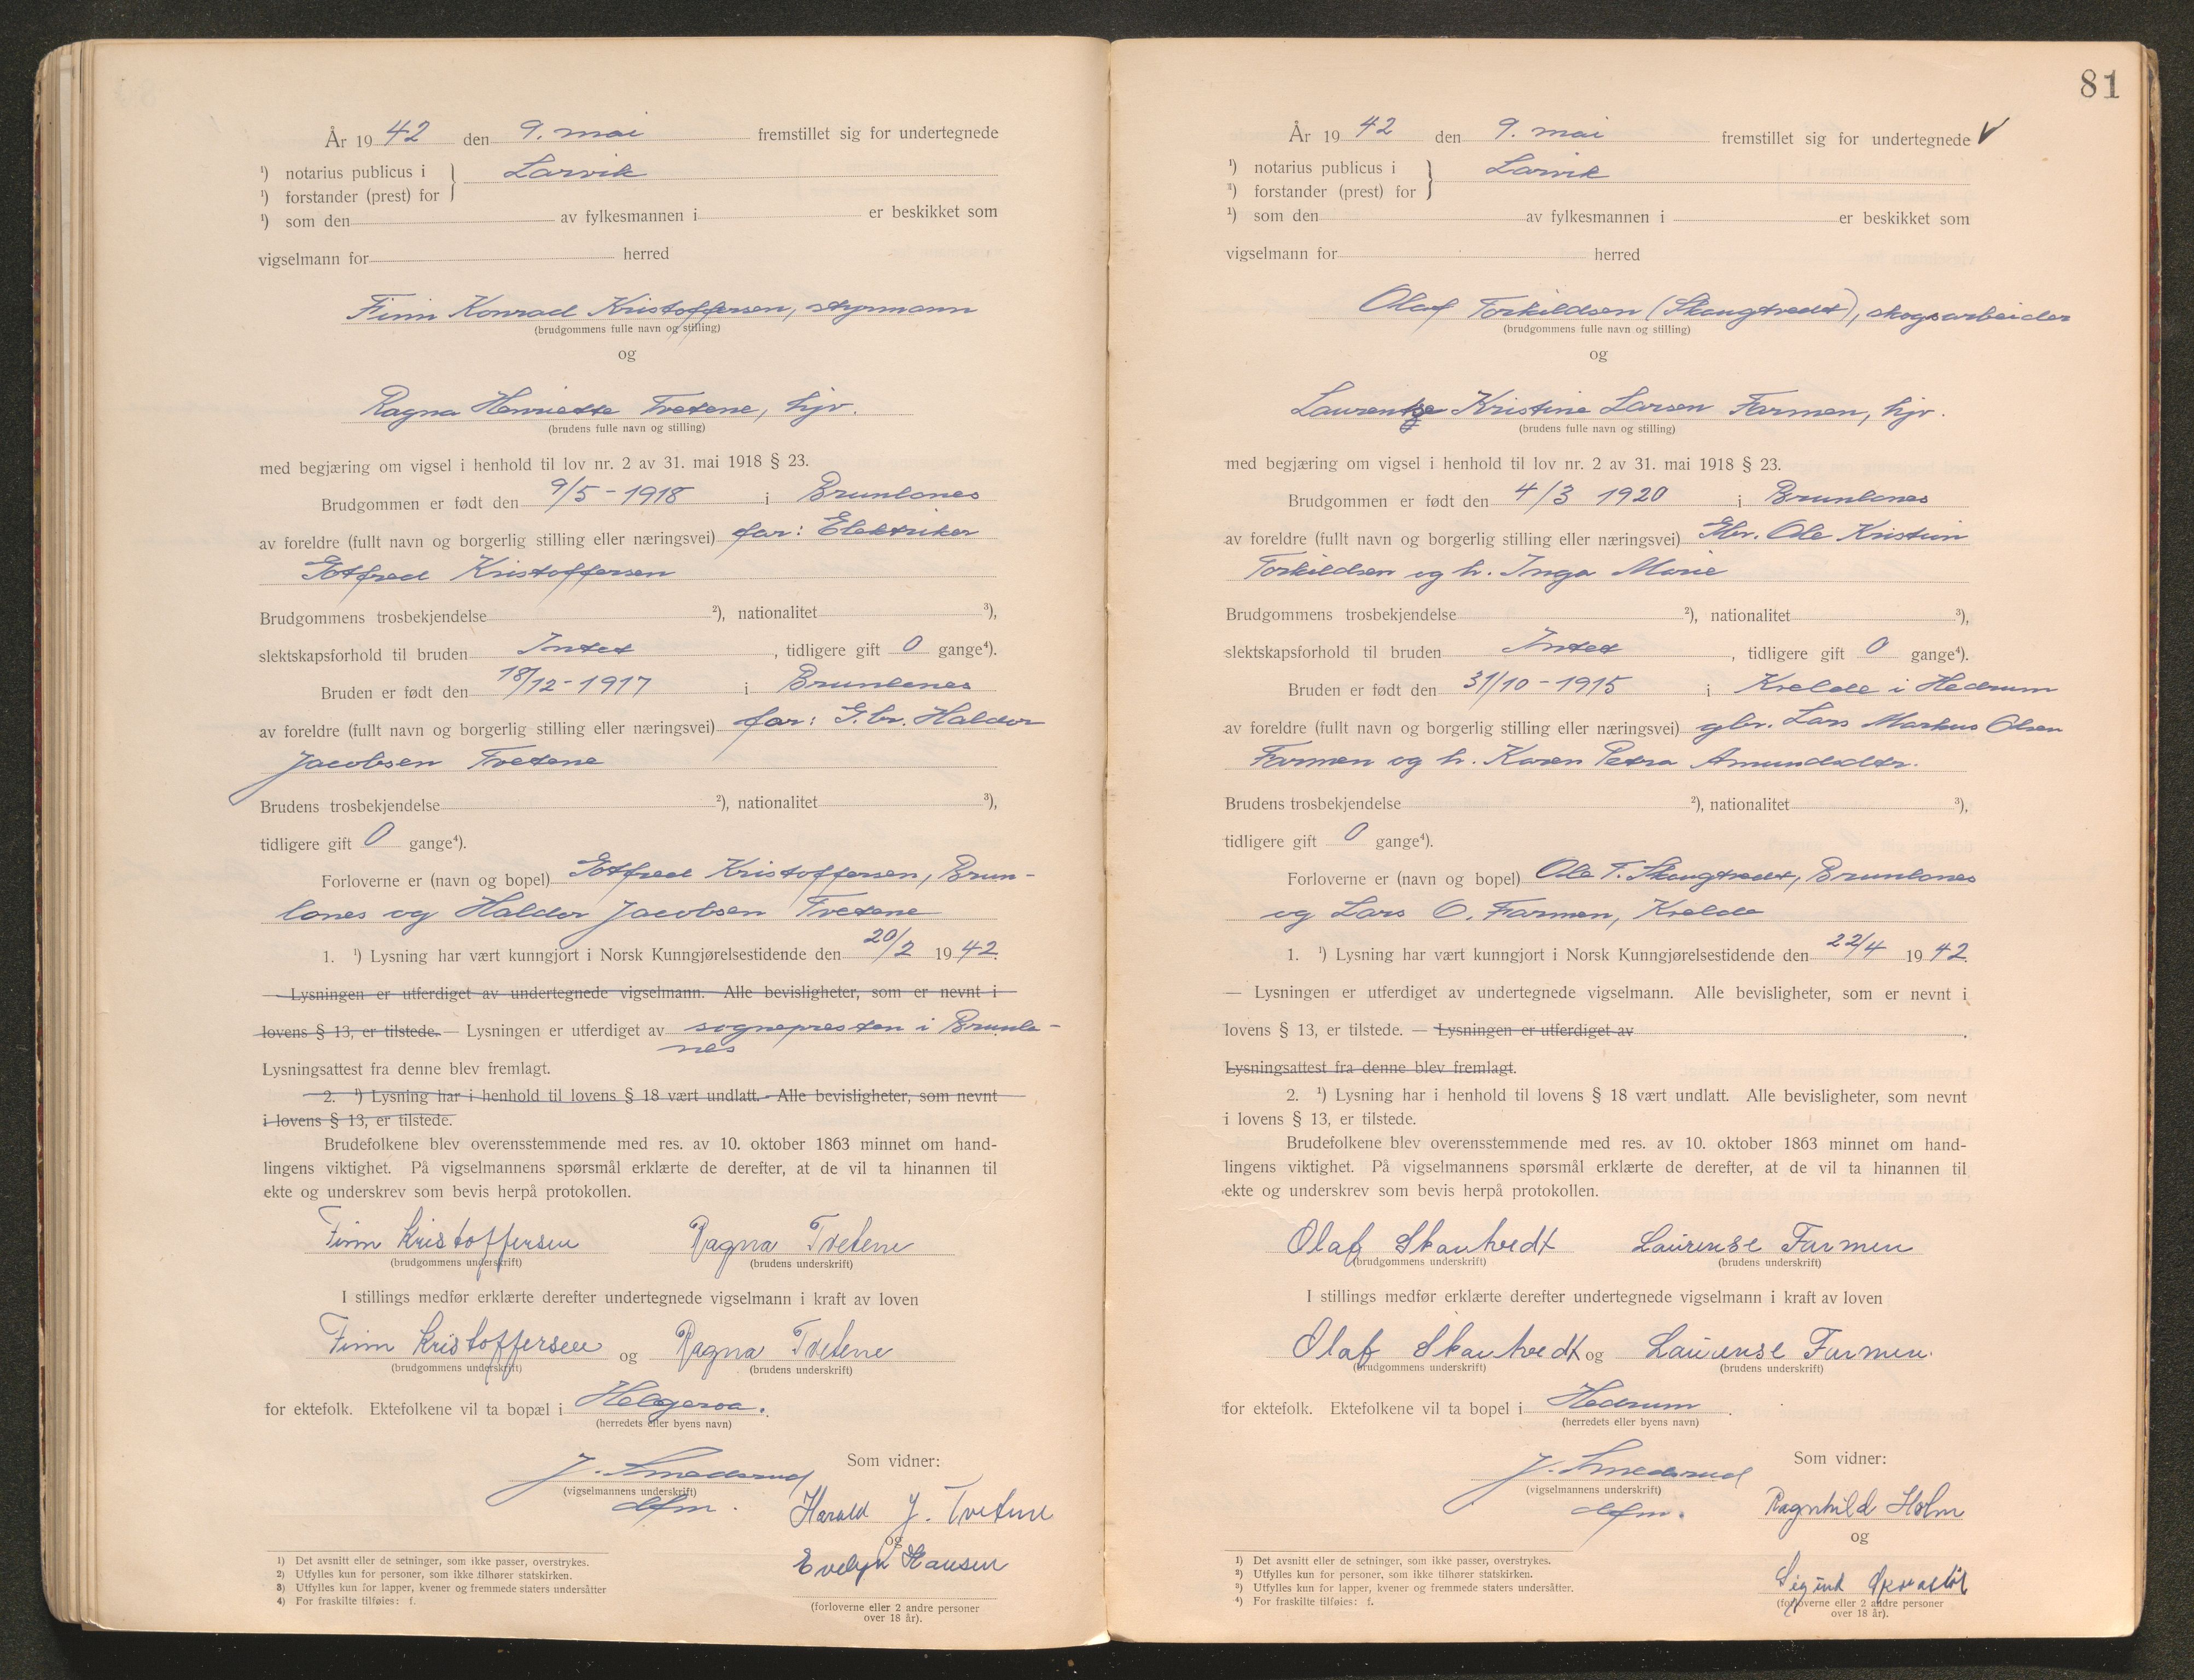 År 19 42 den 9. mai fremstillet sig for undertegnede
¹) notarius publicus i } Larvik
¹) forstander (prest) for
¹) som den av fylkesmannen i er beskikket som
vigselmann for herred
Finn Konrad Kristoffersen, styrmann
(brudgommens fulle navn og stilling)
og
Ragna Henriette Tvetene, hjv.
(brudens fulle navn og stilling)
med begjæring om vigsel i henhold til lov nr. 2 av 31. mai 1918 § 23.
Brudgommen er født den 9/5 - 1918 i Brunlanes
av foreldre (fullt navn og borgerlig stilling eller næringsvei) far: Elektriker
Gotfred Kristoffersen
Brudgommens trosbekjendelse ²), nationalitet ³),
slektskapsforhold til bruden Intet, tidligere gift 0 gange⁴).
Bruden er født den 18/12 - 1917 i Brunlanes
av foreldre (fullt navn og borgerlig stilling eller næringsvei) far: G.br. Haldor
Jacobsen Tvetene
Brudens trosbekjendelse ²), nationalitet ³),
tidligere gift 0 gange⁴).
Forloverne er (navn og bopel) Gotfred Kristoffersen, Brun-
lanes og Haldor Jacobsen Tvetene
1. ¹) Lysning har vært kunngjort i Norsk Kunngjørelsestidende den 20/2 19 42.
— Lysningen er utferdiget av undertegnede vigselmann. Alle bevisligheter, som er nevnt i
lovens § 13, er tilstede. — Lysningen er utferdiget av sognepresten i Brunla-
nes
Lysningsattest fra denne blev fremlagt.
2. ¹) Lysning har i henhold til lovens § 18 vært undlatt. Alle bevisligheter, som nevnt
i lovens § 13, er tilstede.
Brudefolkene blev overensstemmende med res. av 10. oktober 1863 minnet om hand-
lingens viktighet. På vigselmannens spørsmål erklærte de derefter, at de vil ta hinannen til
ekte og underskrev som bevis herpå protokollen.
Finn Kristoffersen Ragna Tvetene
(brudgommens underskrift) (brudens underskrift)
I stillings medfør erklærte derefter undertegnede vigselmann i kraft av loven
Finn Kristoffersen og Ragna Tvetene
(brudgommens underskrift) (brudens underskrift)
for ektefolk. Ektefolkene vil ta bopæl i Helgeroa.
(herredets eller byens navn)
Som vidner:
J. Smedsrud
(vigselmannens underskrift)
dfm.
Harald J. Tvetene
og
Evelyn Hansen
(forloverne eller 2 andre personer
over 18 år).
1) Det avsnitt eller de setninger, som ikke passer, overstrykes.
2) Utfylles kun for personer, som ikke tilhører statskirken.
3) Utfylles kun for lapper, kvener og fremmede staters undersåtter
4) For fraskilte tilføies: f.
81
År 19 42 den 9. mai fremstillet sig for undertegnede ✓
¹) notarius publicus i } Larvik
¹) forstander (prest) for
¹) som den av fylkesmannen i er beskikket som
vigselmann for herred
Olaf Torkildsen (Skaugtvedt), skogsarbeider
(brudgommens fulle navn og stilling)
og
Laurentze Kristine Larsen Farmen, hjv.
(brudens fulle navn og stilling)
med begjæring om vigsel i henhold til lov nr. 2 av 31. mai 1918 § 23.
Brudgommen er født den 4/3 1920 i Brunlanes
av foreldre (fullt navn og borgerlig stilling eller næringsvei) Gbr. Ole Kristian
Torkildsen og h. Inga Marie
Brudgommens trosbekjendelse ²), nationalitet ³),
slektskapsforhold til bruden Intet, tidligere gift 0 gange⁴).
Bruden er født den 31/10 - 1915 i Kvelde i Hedrum
av foreldre (fullt navn og borgerlig stilling eller næringsvei) gbr. Lars Markus Olsen
Farmen og h. Karen Petra Amundsdtr.
Brudens trosbekjendelse ²), nationalitet ³),
tidligere gift 0 gange⁴).
Forloverne er (navn og bopel) Ole T. Skaugtvedt, Brunlanes
og Lars O. Farmen, Kvelde
1. ¹) Lysning har vært kunngjort i Norsk Kunngjørelsestidende den 22/4 19 42.
— Lysningen er utferdiget av undertegnede vigselmann. Alle bevisligheter, som er nevnt i
lovens § 13, er tilstede. — Lysningen er utferdiget av
Lysningsattest fra denne blev fremlagt.
2. ¹) Lysning har i henhold til lovens § 18 vært undlatt. Alle bevisligheter, som nevnt
i lovens § 13, er tilstede.
Brudefolkene blev overensstemmende med res. av 10. oktober 1863 minnet om hand-
lingens viktighet. På vigselmannens spørsmål erklærte de derefter, at de vil ta hinannen til
ekte og underskrev som bevis herpå protokollen.
Olaf Skautvedt Laurense Farmen
(brudgommens underskrift) (brudens underskrift)
I stillings medfør erklærte derefter undertegnede vigselmann i kraft av loven
Olaf Skautvedt og Laurense Farmen.
(brudgommens underskrift) (brudens underskrift)
for ektefolk. Ektefolkene vil ta bopel i Hedrum.
(herredets eller byens navn)
Som vidner:
J. Smedsrud
(vigselmannens underskrift)
dfm.
Ragnhild Holm
og
(forloverne eller 2 andre personer
over 18 år).
1) Det avsnitt eller de setninger, som ikke passer, overstrykes.
2) Utfylles kun for personer, som ikke tilhører statskirken.
3) Utfylles kun for lapper, kvener og fremmede staters undersåtter.
4) For fraskilte tilføies: f.